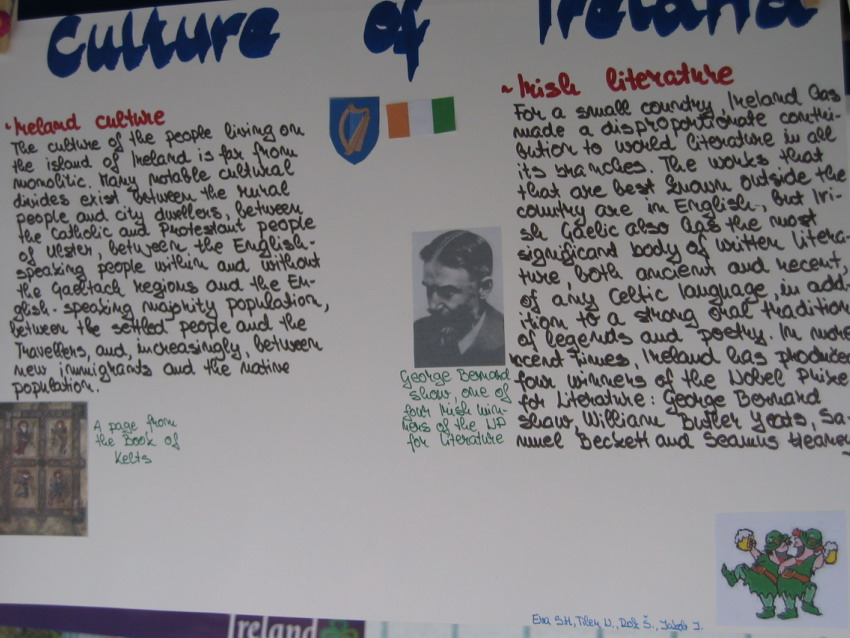 Culture of Ireland
~Ireland culture
The culture of the people living on
the island of Ireland is far from
monolitic. Many notable cultural
divides exist between the rural
people and city dwellers, between
the Catholic and Protestant people
of Ulster, between the English-
speaking people within and without
the Gaeltach regions and the En-
glish-speaking majority population,
between the settled people and the
Travellers, and, increasingly, between
new immigrants and the native
population.
A page from
the Book of
Kelts
George Bernard
Show, one of
four Irish win-
ners of the NP
for Literature
~Irish literature
For a small country, Ireland has
made a disproportionate contri-
bution to world literature in all
its branches. The works that
that are best known outside the
country are in English, but Iri-
sh Gaelic also has the most
significand body of written litera-
ture, both ancient and recent,
of any Celtic language, in add-
ition to a strong oral tradition
of legends and poetry. In more
recent times, Ireland has produced
four winners of the Nobel Prize
for Literature: George Bernard
Shaw, William Butler Yeats, Sa-
muel Beckett and Seamus Heaney
Eva S.H., Tilen U., Rok Š., Jakob J.
Ireland